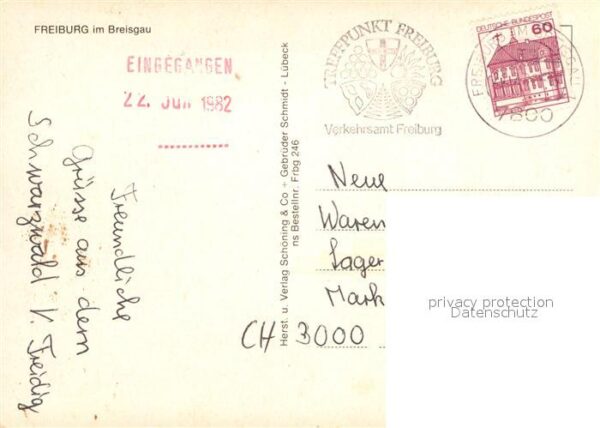 FREIBURG im Breisgau
EINGEGANGEN
22. JUN 1982
Freundliche
Grüsse aus dem
Schwarzwald V. Freidig
Herst. u. Verlag Schöning & Co + Gebrüder Schmidt - Lübeck
ns Bestellnr. Frbg 246
TREFFPUNKT FREIBURG
Verkehrsamt Freiburg
DEUTSCHE BUNDESPOST
60
7800
Neue
Waren
Lager
Mark
CH 3000
privacy protection
Datenschutz